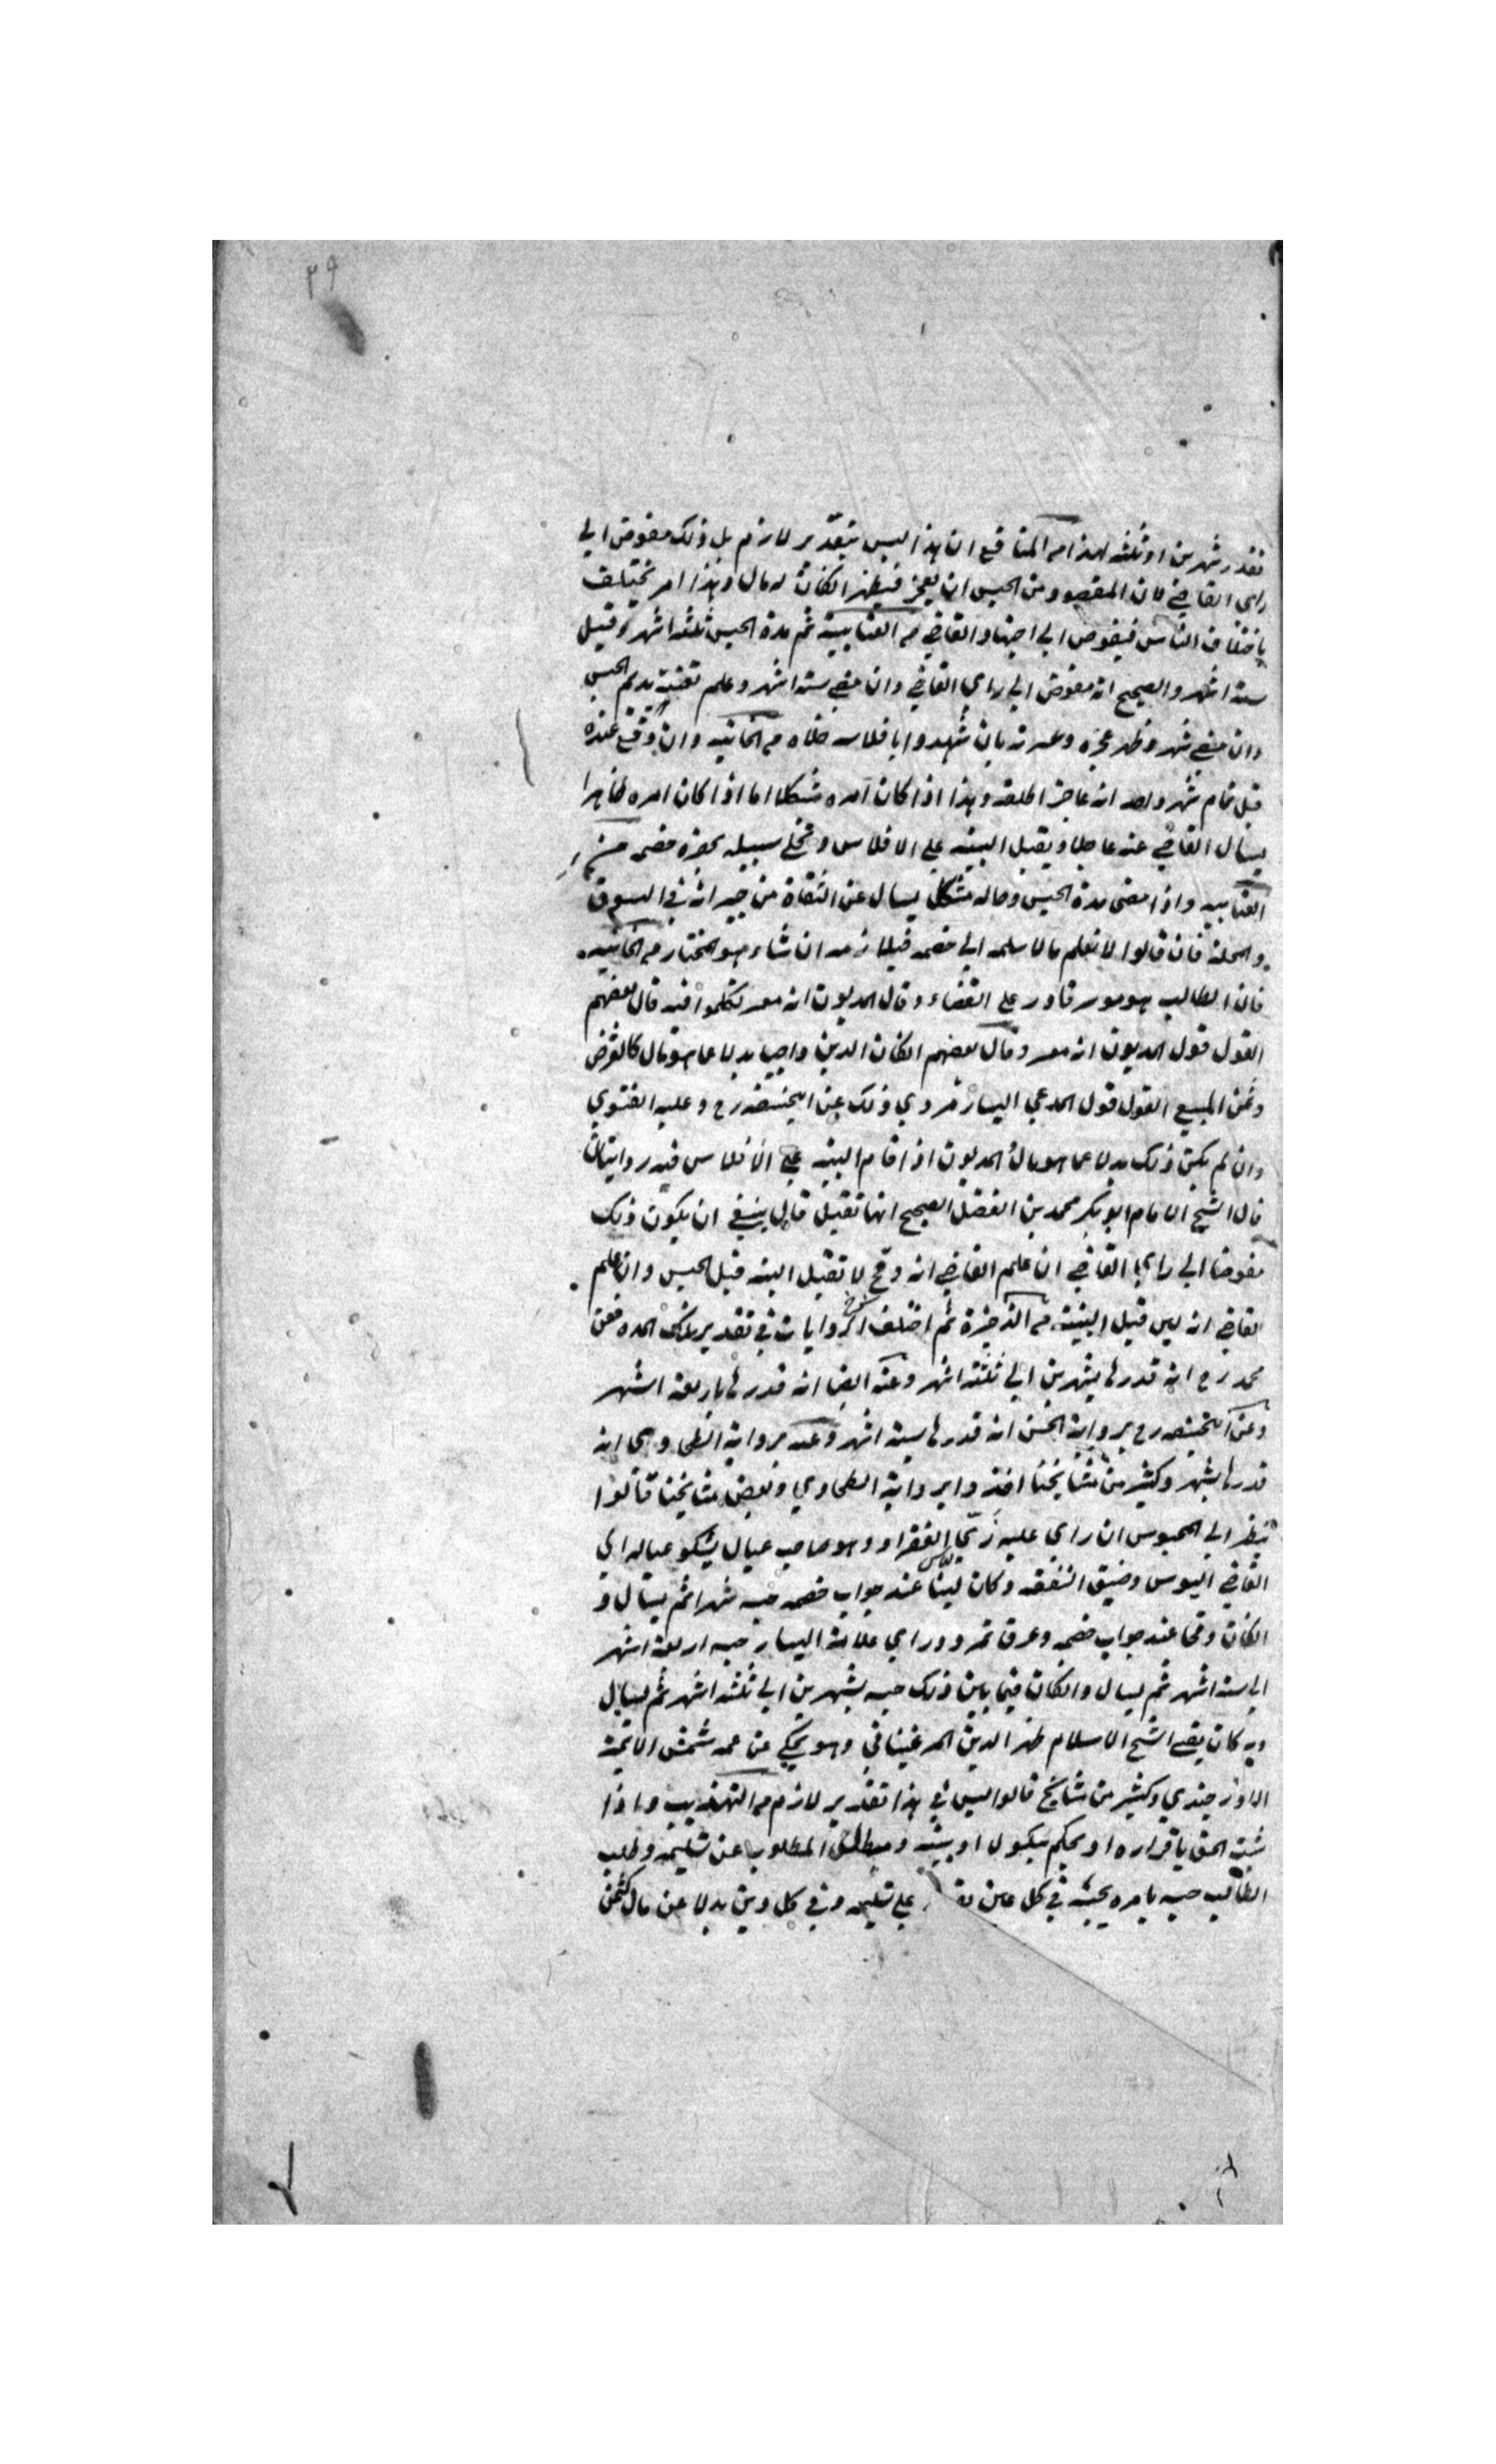 ٣٩
تقدر شهرين او ثلثة لهذا من المنافع ان هذا ليس بتقدير لازم بل ذلك مفوض الي
راي القاضي لان المقصود من الحبس ان يعجز فيظهر الكان له مال وهذا امر يختلف
باختلاف الناس فيفوض الي اجتهاد القاضي من العتابية ثم مدة الحبس ثلثة اشهر وقيل
ستة اشهر والصحيح انه مفوض الي راي القاضي وان مضي ستة اشهر وعلم تعنته يديم الحبس
وان مضي شهر وظهر عجزه وعسرته بان شهدوا بافلاسه خلاه من الخانية وان وقع عنده
قبل تمام شهر واحد انه عاجز اطلقه وهذا اذا كان امره مشكلا اما اذا كان امره ظاهرا
يسال القاضي عنه عاجلا ويقبل البينة علي الافلاس ويخلي سبيله بحضرة خصمه من
العتابية واذا مضى مدة الحبس وحاله مشكل يسال عن الثقاة من جيرانه في السوق
والمحلة فان قالوا لا نعلم مالا سلمه الي خصمه فيلازمه ان شاء هو المختار من الخانية
فان الطالب هو موسر قادر علي القضاء وقال المديون انه معسر تكلموا فيه قال بعضهم
القول قول المديون انه معسر وقال بعضهم الكان الدين واجبا بدلا عما هو مال كالقرض
وثمن المبيع القول قول المدعي اليسار مروي ذلك عن ابيحنيفه رح وعليه الفتوي
وان لم يكن ذلك بدلا عما هو مال المديون اذا اقام البينة علي الافلاس فيه روايتان
قال الشيخ الامام ابو بكر محمد بن الفضل الصحيح انها تقبل قال ينبغي ان يكون ذلك
مفوضا الي راي القاضي ان علم القاضي انه وقح لا تقبل البينة قبل الحبس وان علم
القاضي انه لين قبل البينة من الذخيرة ثم اختلف الروايات في تقدير تلك المدة فعن
محمد رح انه قدرها بشهرين الي ثلثة اشهر وعنه ايضا انه قدرها باربعة اشهر
وعن ابيحنيفه رح برواية الحسن انه قدرها ستة اشهر وعنه برواية الطحاوي انه
قدرها بشهر وكثير من مشايخنا اخذوا برواية الطحاوي وبعض مشايخنا قالوا
ينظر الي المحبوس ان راي عليه زي الفقراء وهو صاحب عيال يشكو عياله الي
القاضي البوس وضيق النفقة وكان لينا عند جواب خصمه حبسه شهرا ثم يسال و
الكان وقحا عند جواب خصمه وعرف تمرده وراي علامة اليسار حبسه اربعة اشهر
الي ستة اشهر ثم يسال والكان فيما بين ذلك حبسه بشهرين الي ثلثة اشهر ثم يسال
وبه كان يفتي الشيخ الاسلام ظهر الدين المرغيناني وهو يحكي عن عمه شمس الائمة
الاوزجندي وكثير من مشايخ قالوا ليس في هذا تقدير لازم من التهذيب واذا
ثبت الحق باقراره او بحكم بنكول او بينة ومطل المطلوب عن تسليمه وطلب
الطالب حبسه يامره بحبسه في كل عين يقدر علي تسليمه وفي كل دين بدلا عن مال كثمن